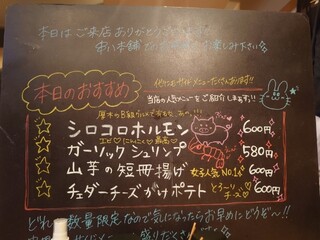 本日はご来店ありがとうございます
本日のおすすめ
他にもサイドメニューたくさんあります!!
当店の人気メニューをご紹介します!!
厚木のB級グルメで
☆ シロコロホルモン 600円
エビ♡にんにく♡最高♡
☆ ガーリックシュリンプ 580円
☆ 山芋の短冊揚げ 女子人気No.1 600円
☆ チェダーチーズがけポテト とろ〜りチーズ 600円
どれも数量限定なので気になったらお早めにどうぞ〜!!